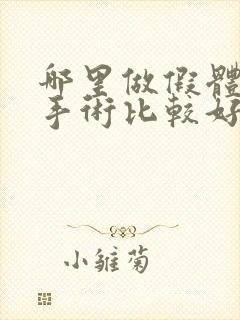 哪里做假體
手術比較好
小雏菊